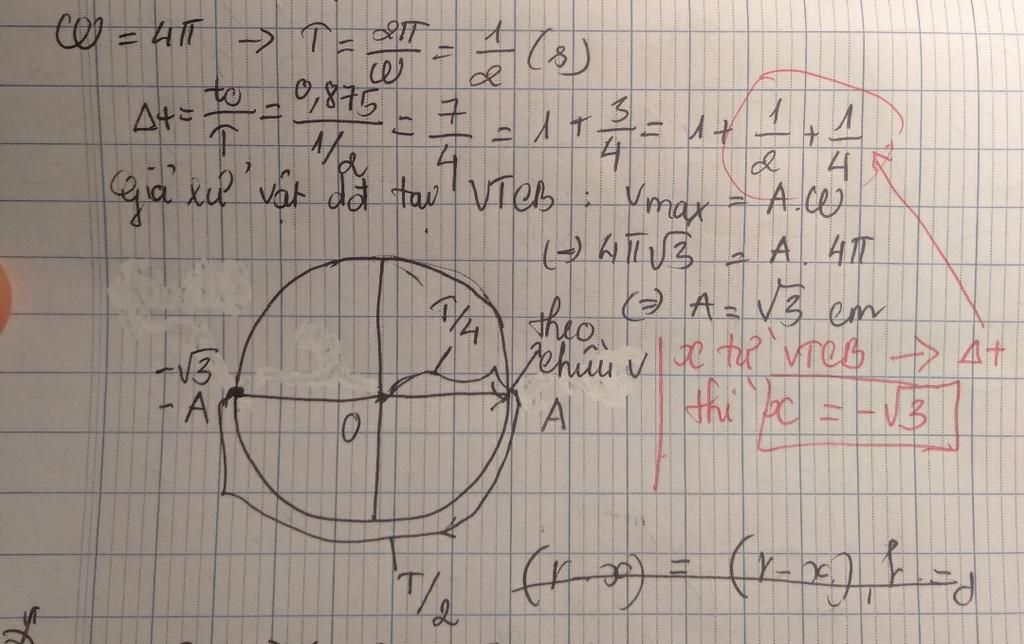 ω = 4π → T = 2π/ω = 1/2 (s)
Δt = to/T = 0,875/1/2 = 7/4 = 1 + 3/4 = 1 + 1/2 + 1/4
Giả xử vật dđ tại VTCB : Vmax = A.ω
(→) 4π√3 = A. 4π
(=) A = √3 cm
T/4
theo
chiều v
x từ VTCB → Δt
thì x = -√3
-√3
-A
O
A
T/2
P = 1, (x-r) = (x-r)